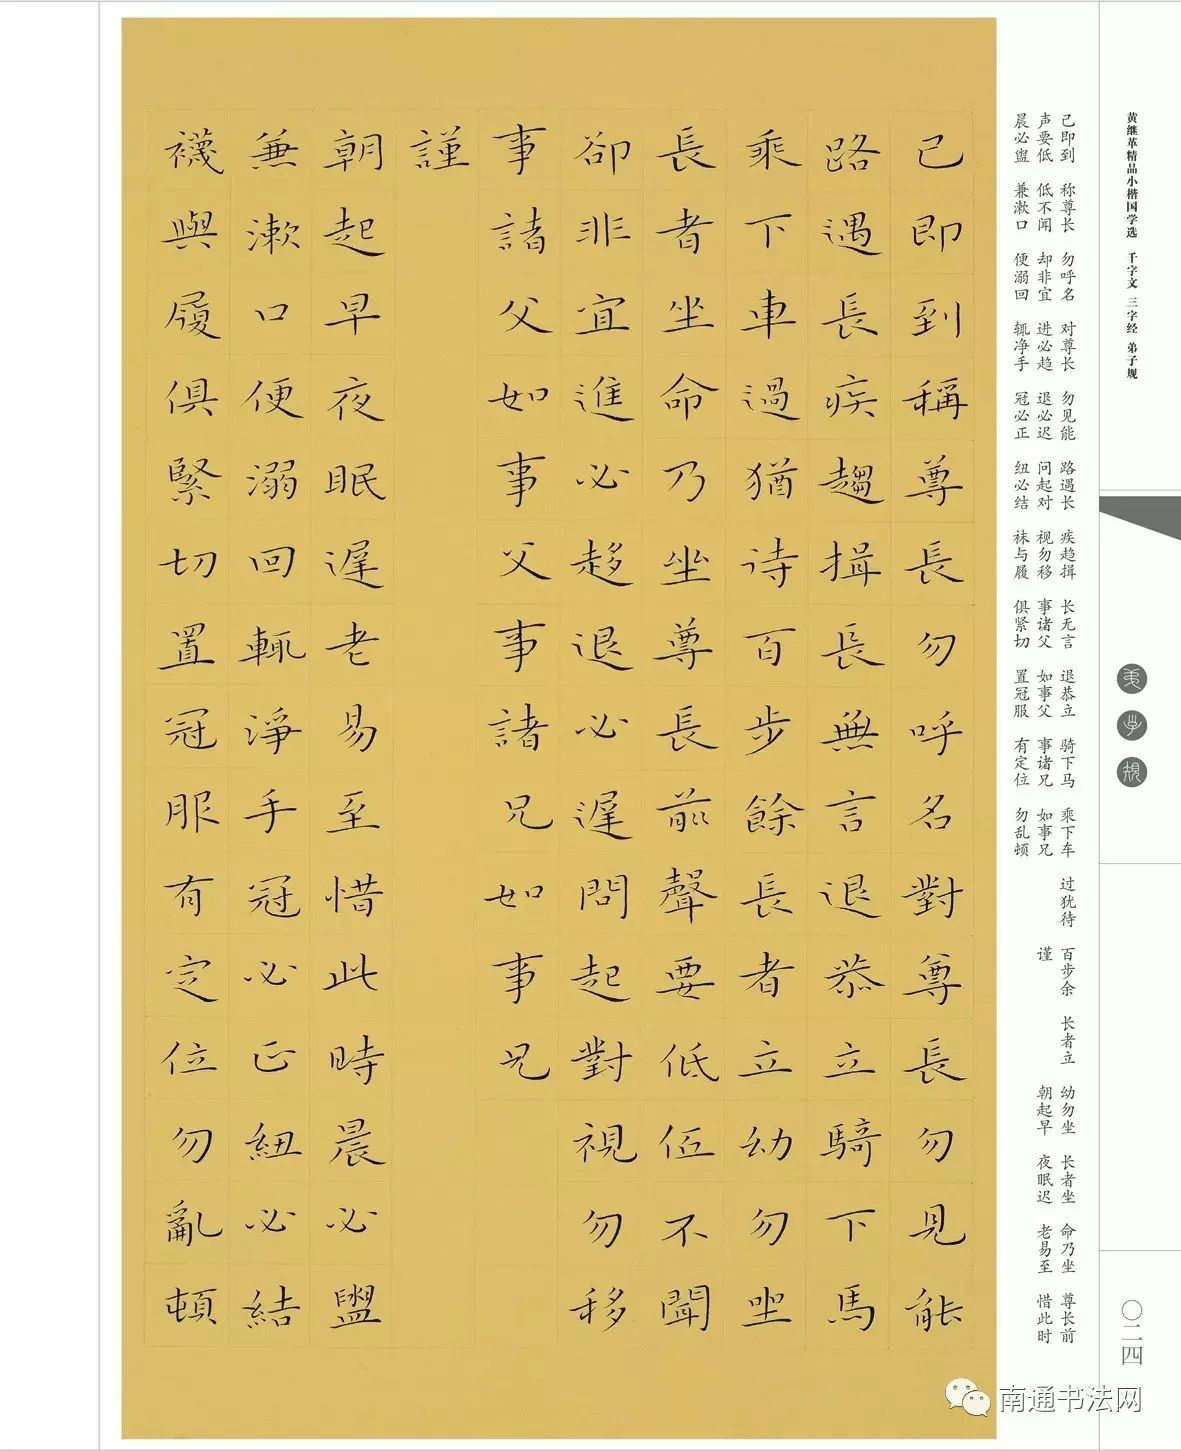 黄继革精品小楷国学选 千字文 三字经 弟子规
弟子規
〇二四
己即到 称尊长 勿呼名 对尊长 勿见能 路遇长 疾趋揖 长无言 退恭立 骑下马 乘下车 过犹待 百步余 长者立 幼勿坐 长者坐 命乃坐 尊长前
声要低 低不闻 却非宜 进必趋 退必迟 问起对 视勿移 事诸父 如事父 事诸兄 如事兄 谨 朝起早 夜眠迟 老易至 惜此时
晨必盥 兼漱口 便溺回 辄净手 冠必正 纽必结 袜与履 俱紧切 置冠服 有定位 勿乱顿
己即到稱尊長勿呼名對尊長勿見能
路遇長疾趨揖長無言退恭立騎下馬
乘下車過猶待百步餘長者立幼勿坐
長者坐命乃坐尊長前聲要低低不聞
卻非宜進必趍退必遲問起對視勿移
事諸父如事父事諸兄如事兄
謹
朝起早夜眠遲老易至惜此時晨必盥
兼漱口便溺回輒淨手冠必正紐必結
襪與履俱緊切置冠服有定位勿亂頓
南通书法网